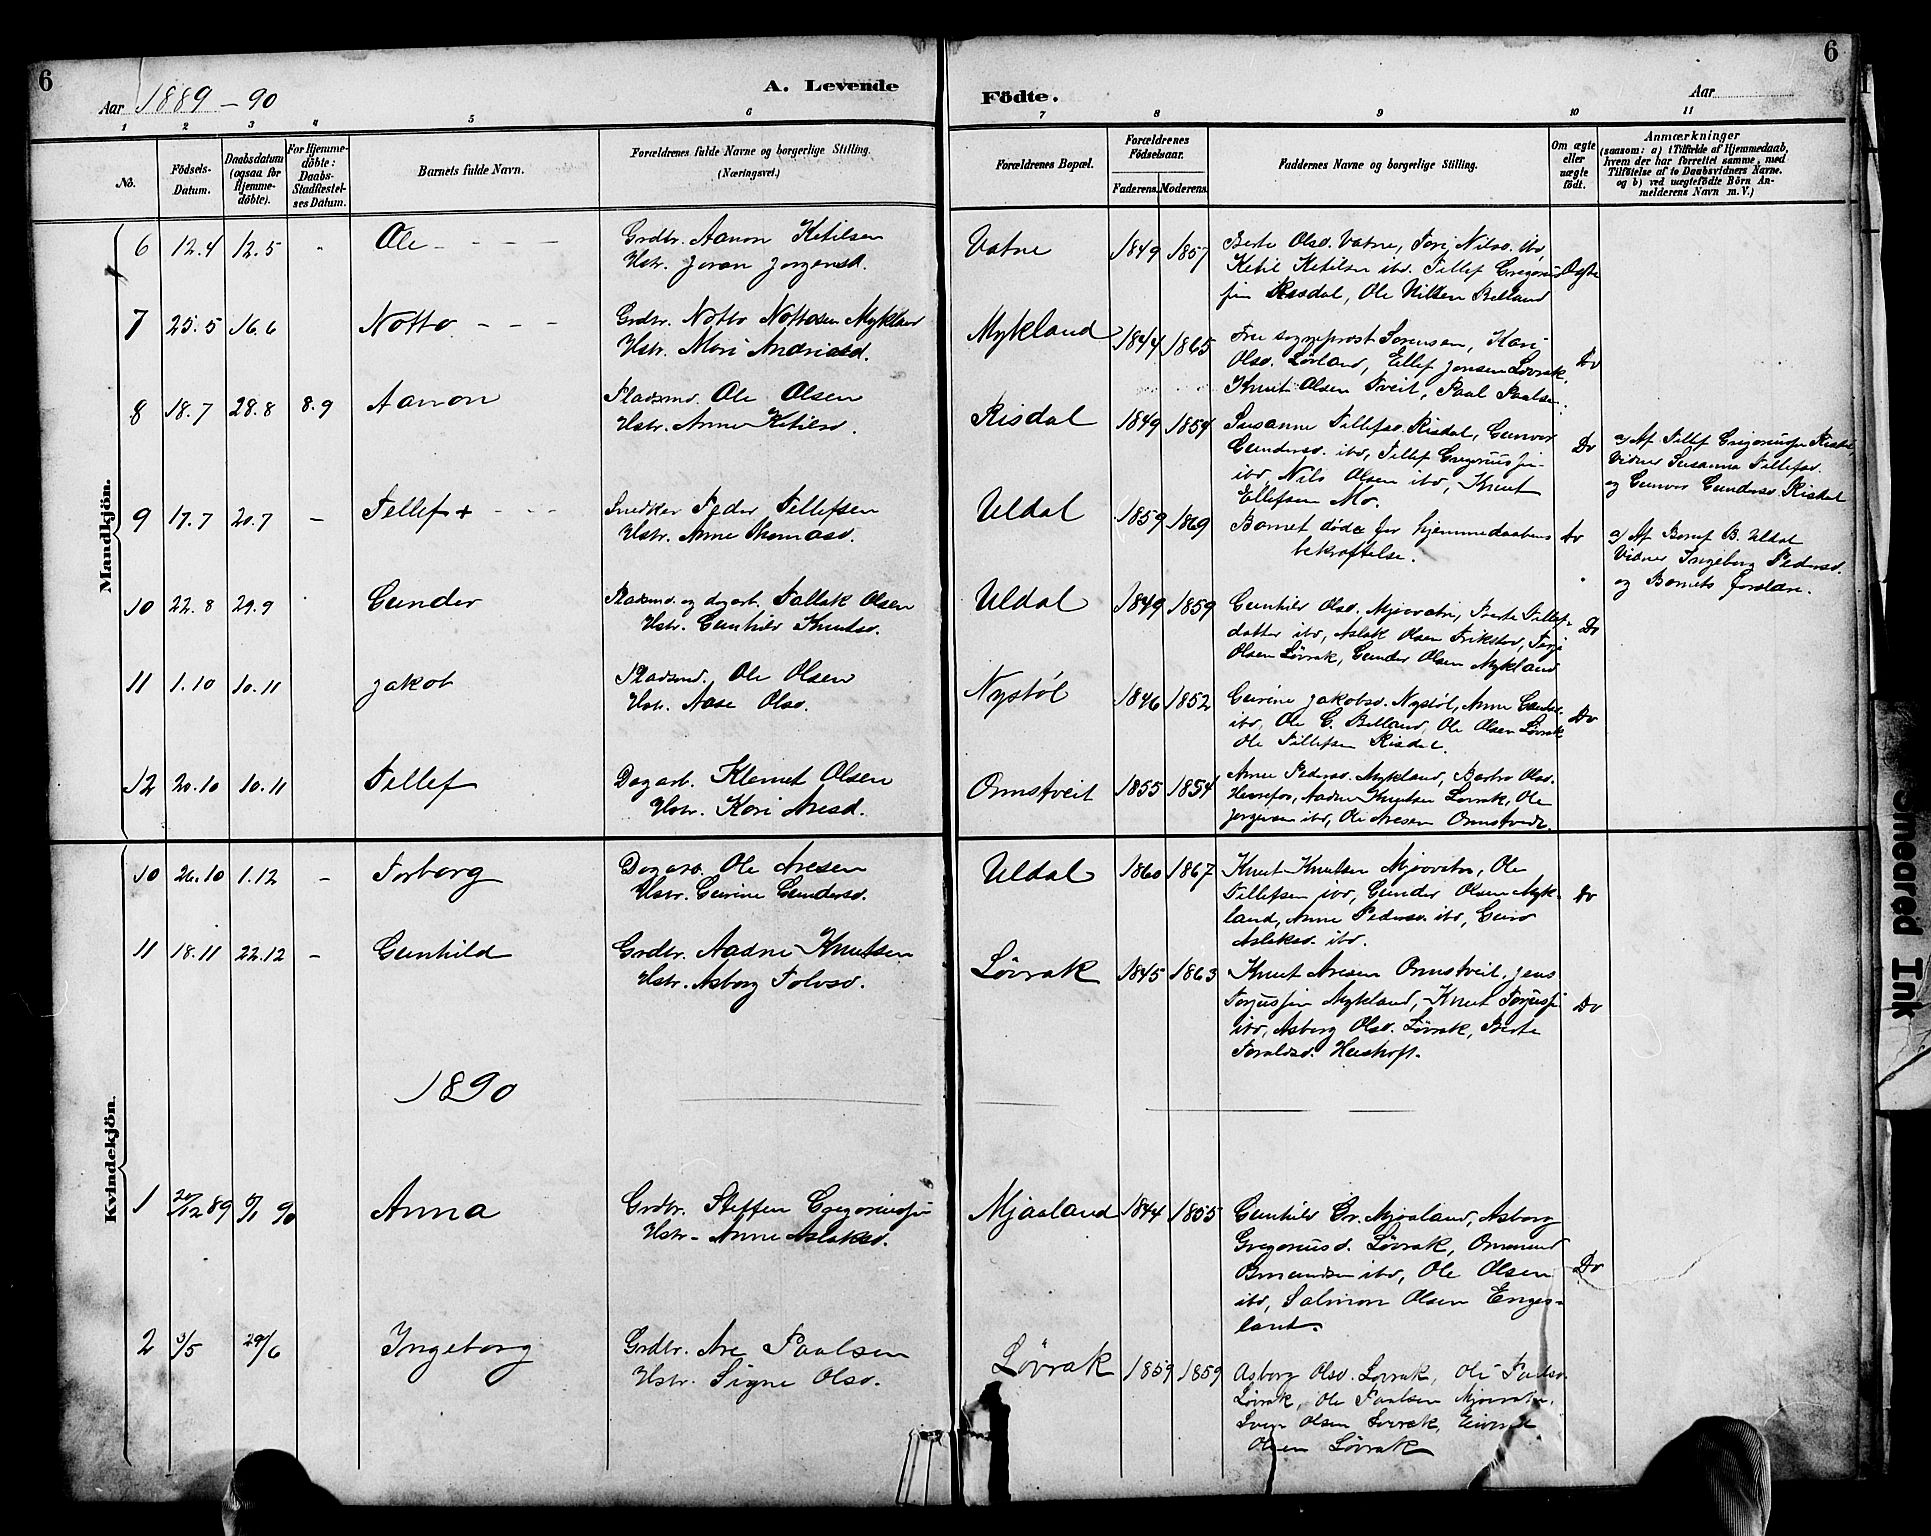 6
Aar 1889-90
A. Levende
Födte.
Aar
6
1 2 3 4 5 6 7 8 9 10 11
No.
Födsels-Datum.
Daabsdatum (ogsaa for Hjemme-döbte).
For Hjemme-döbte: Daabs-Stadfæstel-ses Datum.
Barnets fulde Navn.
Forældrenes fulde Navne og borgerlige Stilling.
(Næringsvei.)
Forældrenes Bopæl.
Forældrenes Födselsaar.
Faderens. Moderens.
Faddernes Navne og borgerlige Stilling.
Om ægte eller uægte födt.
Anmærkninger
(saasom: a) i Tilfælde af Hjemmedaab,
hvem der har forrettet samme, med
Tilföielse af to Daabsvidners Navne.
og b) ved uægtefödte Börn An-
melderens Navn m. V.)
Mandkjön.
6 12.4 12.5 - Ole - - - -
Grdbr. Aanon Ketilsen
Hstr. Joran Jorgensd.
Vatne 1849 1857
Berte Olsd. Vatne, Tori Nilsd. ibd,
Ketil Ketilsen ibd. Tellef Gregorius-
sen Risdal, Ole Nilsen Belland
Ægte
7 25.5 16.6 Notto - - -
Grdbr. Notto Nottosen Mykland
Hstr. Mari Andriasd.
Mykland 1844 1865
Fru sogneprost Sorensen, Kari
Olsd. Lovland, Ellef Jensen Lovrak,
Knut Olsen Tveit, Paal Paalsen.
Do
8 18.7 28.8 8.9 Aanon
Pladsmd. Ole Olsen
Hstr. Anne Ketilsd.
Risdal 1849 1854
Susanne Tellefsd. Risdal, Gunvor
Gundersd. ibd, Tellef Gregoriussen
ibd, Nils Olsen ibd, Knut
Ellefsen Mo.
Do
a) Af Tellef Gregoriussen Risdal,
Vidner Susanna Tellefsd.
og Gunvor Gundersd. Risdal
9 17.7 20.7 - Tellef + - - -
Snedker Peder Tellefsen
Hstr. Anne Thomasd.
Uldal 1859 1869
Barnet døde før hjemmedaabens
bekræftelse.
Do
a) Af B. Uldal
Vidner Ingeborg Pedersd.
og Barnets forældre.
10 22.8 29.9 Gunder
Pladsmd. og dagarb. Tallak Olsen
Hstr. Gunhild Knutsd.
Uldal 1849 1859
Gunhild Olsd. Mjovatn, Berte Tellef-
datter ibd, Aslak Olsen Frikstad, Terje
Olsen Lövrak, Gunder Olsen Mykland
Do
11 1.10 10.11 Jakob
Pladsmd. Ole Olsen
Hstr. Aase Olsd.
Nystöl 1846 1852
Gurine Jakobsd. Nystöl, Anne Gunder.
ibd, Ole G. Belland, Ole Olsen Lövrak
Ole Tellefsen Risdal.
Do
12 20.10 10.11 Tellef
Dagarb. Klemet Olsen
Hstr. Kari Aresd.
Ormstveit 1855 1854
Anne Pedersd. Mykland, Barbro Olsd.
Herrefos, Aadne Knutsen Lovrak, Ole
Jorgensen ibd, Ole Aresen Ormstvedt.
Kvindekjön.
10 26.10 1.12 - Torborg
Dagarb. Ole Aresen
Hstr. Gurine Gundersd.
Uldal 1860 1867
Knut Knutsen Mjovatn, Ole
Tellefsen ibd, Gunder Olsen Myk-
land, Anne Pedersd. ibd, Guro
Aslaksd. ibd.
Do
11 18.11 22.12 - Gunhild
Grdbr. Aadne Knutsen
Hstr. Asborg Tolvsd.
Lövrak 1845 1863
Knut Aresen Ormstveit, Jens
Torjussen Mykland, Knut Torjussen
ibd, Asborg Olsd. Lövrak, Berte
Toraldsd. Heishoft.
Do
1890
1 20/12 89 6/1 90 Anna
Grdbr. Steffen Gregoriussen
Hstr. Anne Aslaksd.
Mjaaland 1844 1855
Gunhild Gr. Mjaaland, Asborg
Gregoriusd. Lövrak, Ommund
Omundsen ibd, Ole Olsen
ibd, Salmon Olsen Enges-
land.
Do
2 /5 29/6 Ingeborg
Grdbr. Are Paalsen
Hstr. Signe Olsd.
Lövrak 1859 1859
Asborg Olsd. Lovrak, Ole Paals.
Lövrak, Ole Paalsen Mjovatn,
Olsen Lovrak, Eivind
Olsen Lövrak
Smeared Ink